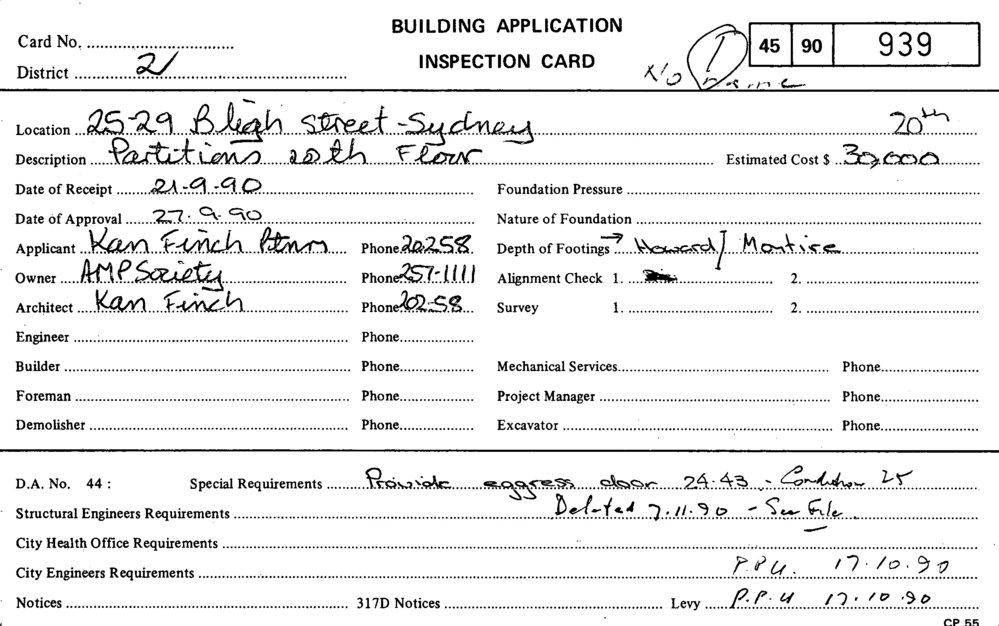 BUILDING APPLICATION
INSPECTION CARD
Card No.
District 2
45 90 939
Location 25-29 Bligh Street - Sydney 20th
Description Partitions 20th Floor Estimated Cost $ 30,000
Date of Receipt 21-9-90 Foundation Pressure
Date of Approval 27.9.90 Nature of Foundation
Applicant Kan Finch Ptnrs Phone 20258 Depth of Footings → Howard / Montire
Owner AMP Society Phone 257-1111 Alignment Check 1. 2.
Architect Kan Finch Phone 202-58 Survey 1. 2.
Engineer Phone
Builder Phone Mechanical Services Phone
Foreman Phone Project Manager Phone
Demolisher Phone Excavator Phone
D.A. No. 44 : Special Requirements Provide eggress door 24.43 - Condition 25
Structural Engineers Requirements Deleted 7.11.90 - See File.
City Health Office Requirements
City Engineers Requirements P.P.U. 17.10.90
Notices 317D Notices Levy P.P.U 17.10.90
CP 55